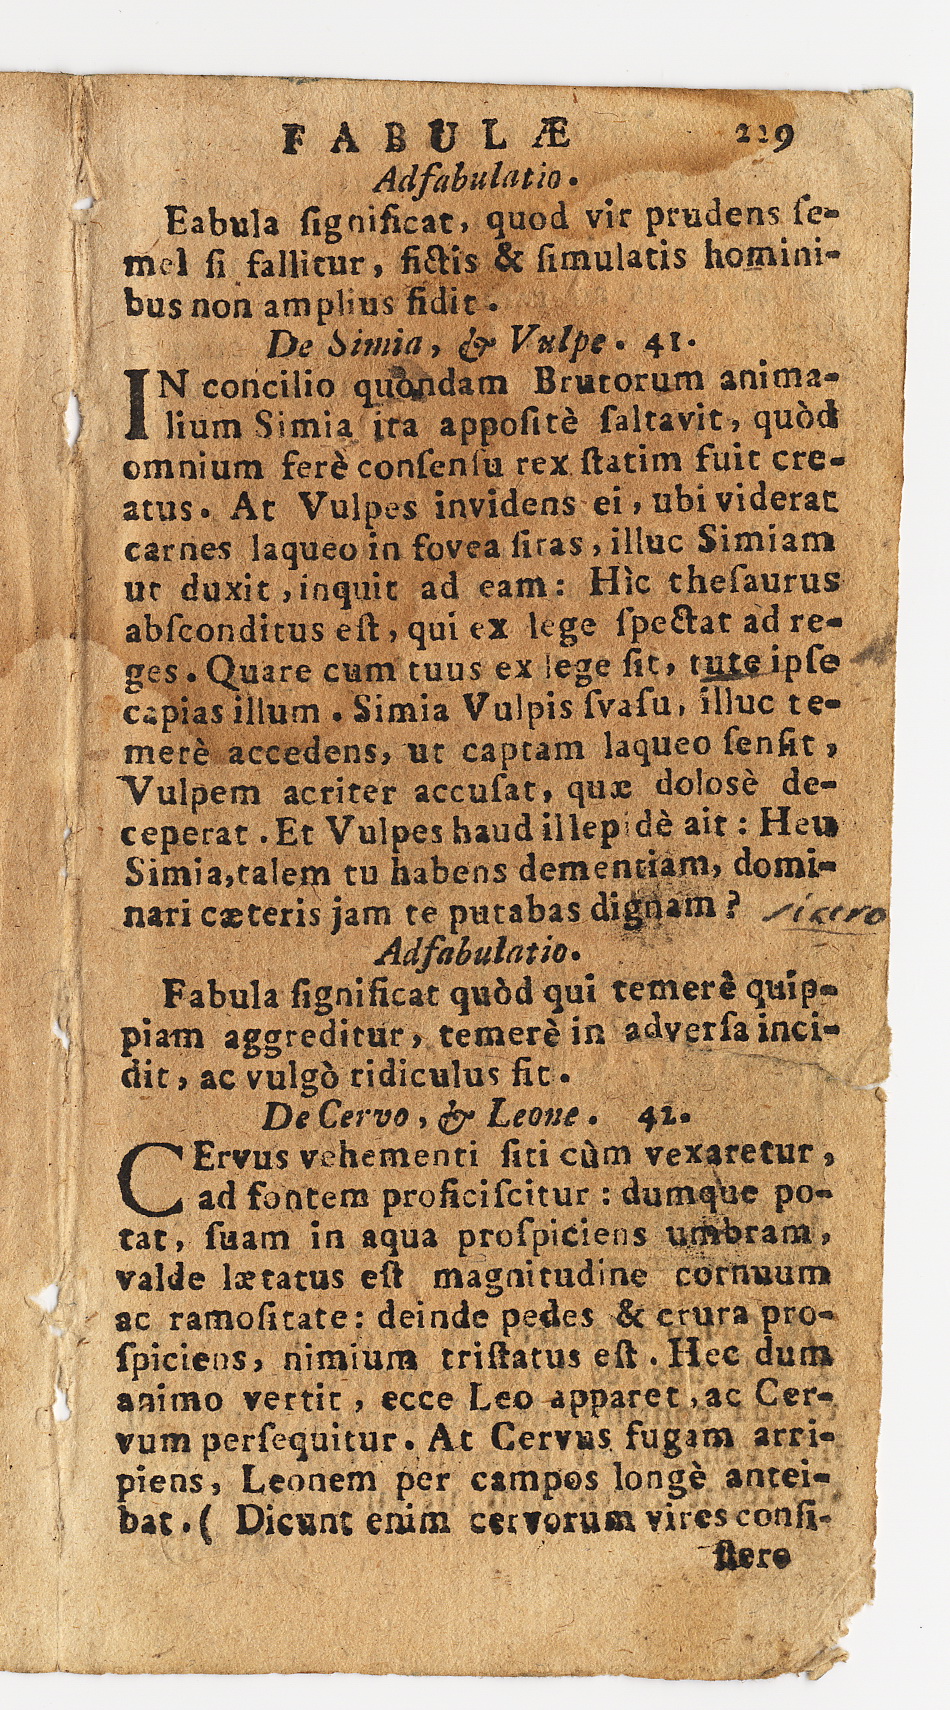 FABULÆ 229
Adfabulatio.
Eabula ſignificat, quod vir prudens ſe-
mel ſi fallitur, fictis & ſimulatis homini-
bus non amplius fidit.
De Simia, & Vulpe. 41.
IN concilio quondam Brutorum anima-
lium Simia ita appoſitè ſaltavit, quòd
omnium ferè conſenſu rex ſtatim fuit cre-
atus. At Vulpes invidens ei, ubi viderat
carnes laqueo in fovea ſitas, illuc Simiam
ut duxit, inquit ad eam: Hìc theſaurus
abſconditus eſt, qui ex lege ſpectat ad re-
ges. Quare cum tuus ex lege ſit, tute ipſe
capias illum. Simia Vulpis ſvaſu, illuc te-
merè accedens, ut captam laqueo ſenſit,
Vulpem acriter accuſat, quæ dolosè de-
ceperat. Et Vulpes haud illepidè ait: Heu
Simia, talem tu habens dementiam, domi-
nari cæteris jam te putabas dignam?
Adfabulatio.
Fabula ſignificat quòd qui temerè quip-
piam aggreditur, temerè in adverſa inci-
dit, ac vulgò ridiculus fit.
De Cervo, & Leone. 42.
CErvus vehementi ſiti cùm vexaretur,
ad fontem proficiſcitur: dumque po-
tat, ſuam in aqua proſpiciens umbram,
valde lætatus eſt magnitudine cornuum
ac ramoſitate: deinde pedes & crura pro-
ſpiciens, nimium triſtatus eſt. Hec dum
animo vertit, ecce Leo apparet, ac Cer-
vum perſequitur. At Cervus fugam arri-
piens, Leonem per campos longè antei-
bat. ( Dicunt enim cervorum vires conſi-
ſtere